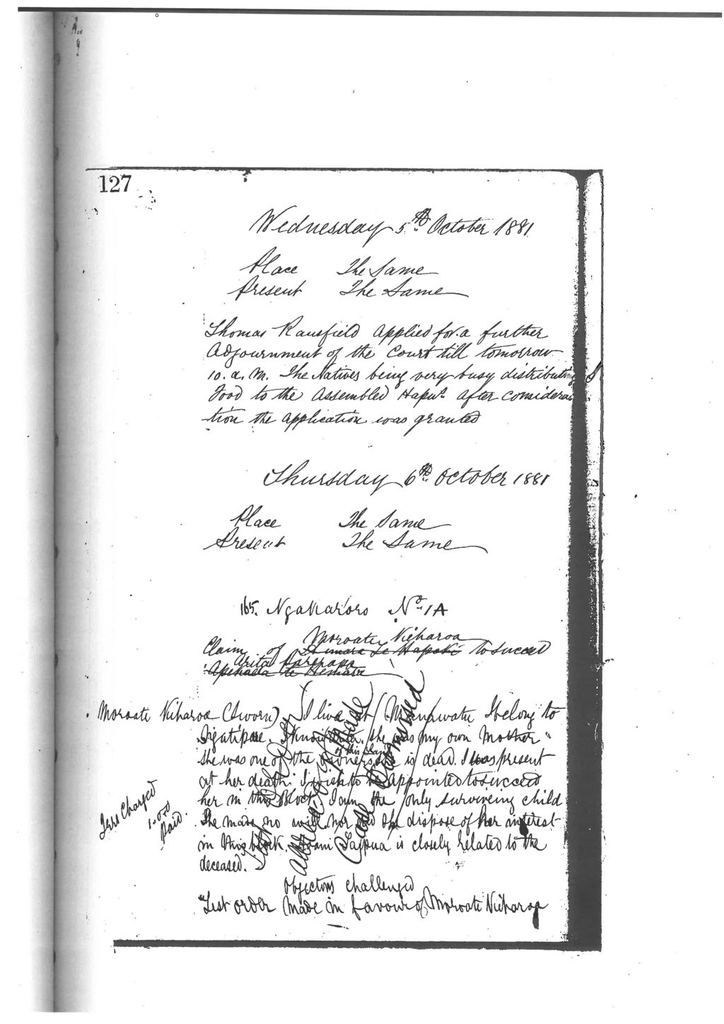 127
Wednesday 5th October 1881
Place The Same
Present The Same
Thomas Ransfield applied for a further
Adjournment of the Court till tomorrow
10. a. M. The Natives being very busy distributing
Food to the Assembled Hapus after considera
tion the application was granted
Thursday 6th October 1881
Place The Same
Present The Same
165. Ngakaroro No 1A
Moroati Niharoa
Claim of to succeed
Moroati Kiharoa (Sworn) I live at Manawatu I belong to
she was my own Mother
she was one of the owners of this land is dead. I was present
at her death. I wish to be appointed to succeed
her in this Block I am the only surviving child
She made no will nor did she dispose of her interest
in this block is closely related to the
deceased.
Fees Charged
1-0-0
Paid.
Case Dismissed
Objectors challenged
order Made in favour of Moroati Kiharoa